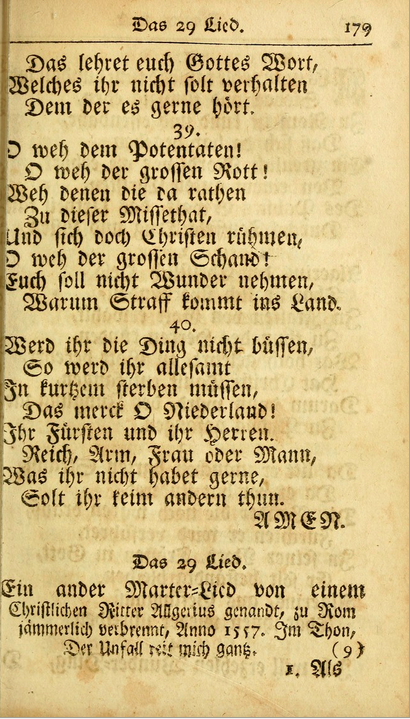 Das 29 Lied. 179
Das lehret euch Gottes Wort,
Welches ihr nicht solt verhalten
Dem der es gerne hört.
39.
O weh dem Potentaten!
O weh der grossen Rott!
Weh denen die da rathen
Zu dieser Missethat,
Und sich doch Christen rühmen,
O weh der grossen Schand!
Euch soll nicht Wunder nehmen,
Warum Straff kommt ins Land.
40.
Werd ihr die Ding nicht büssen,
So werd ihr allesamt
In kurtzem sterben müssen,
Das merck O Niederland!
Ihr Fürsten und ihr Herren.
Reich, Arm, Frau oder Mann,
Was ihr nicht habet gerne,
Solt ihr keim andern thun.
AMEN.
Das 29 Lied.
Ein ander Marter-Lied von einem
Christlichen Ritter Allgerius genandt, zu Rom
jämmerlich verbrennt, Anno 1557. Im Thon,
Der Unfall reit mich gantz. (9)
1. Als